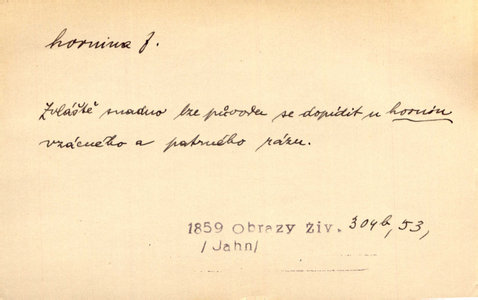 hornina f.
Zvláště snadno lze původu se dopíditi u hornin
vzácného a patrného rázu.
1859 Obrazy Živ. 304b, 53,
/Jahn/